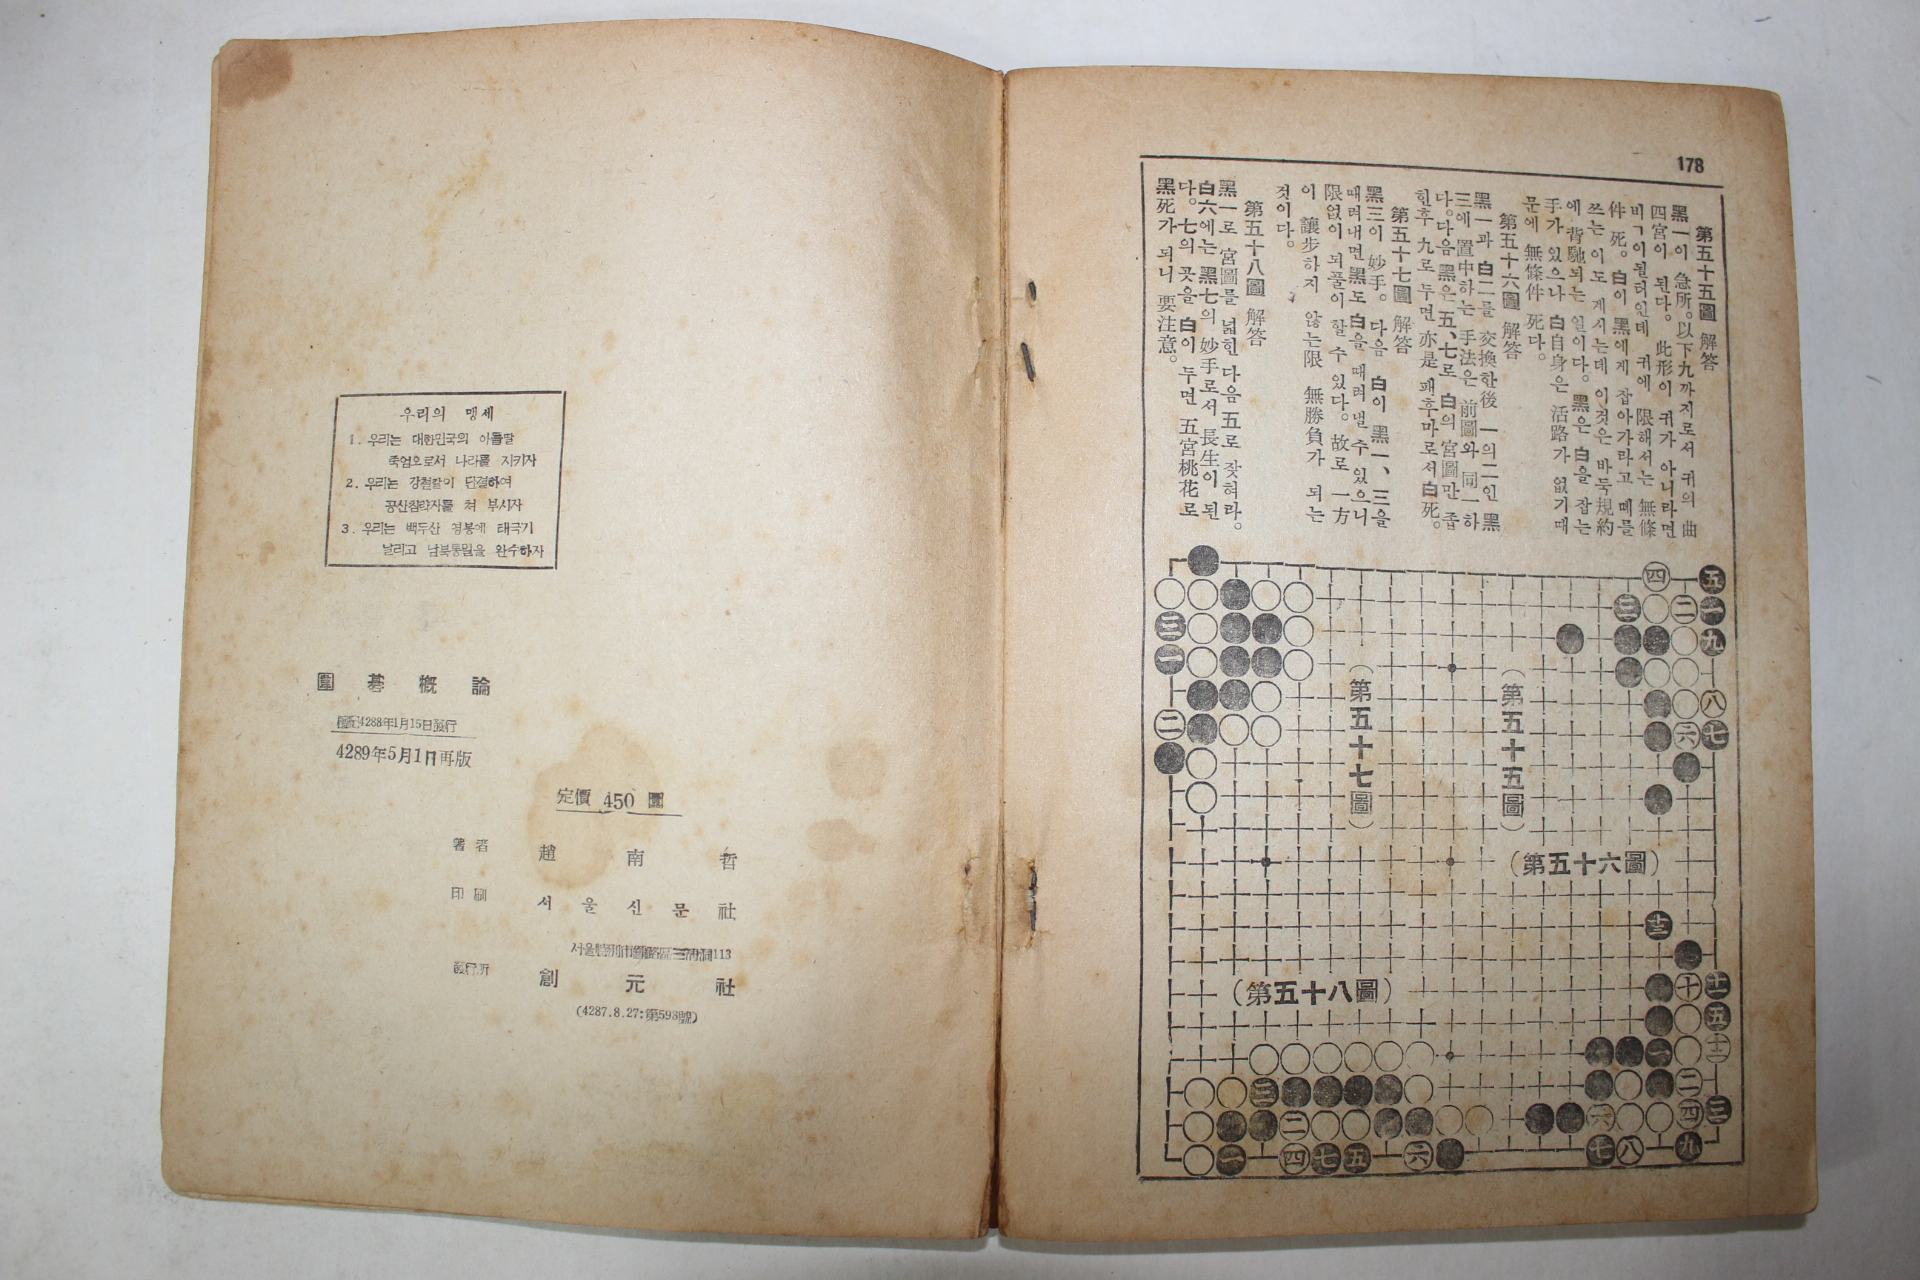 우리의 맹세
1. 우리는 대한민국의 아들딸
죽엄으로서 나라를 지키자
2. 우리는 강철같이 단결하여
공산침략자를 쳐 부시자
3. 우리는 백두산 영봉에 태극기
날리고 남북통일을 완수하자
圍碁概論
4288年1月15日發行
4289年5月1日再版
定價 450 圜
著者 趙南哲
印刷 서울신문社
서울特別市鍾路區三淸洞113
發行所 創元社
(4287.8.27:第598號)
178
第五十五圖 解答
黑一이 急所。以下九까지로서 귀의 曲
四宮이 된다。此形이 귀가 아니라면
비ㄱ이될터인데 귀에 限해서는 無條
件 死。白이 黑에게 잡아가라고 떼를
쓰는 이도 게시는데 이것은 바둑規約
에 背馳되는 일이다。黑은 白을 잡는
手가 있으나 白自身은 活路가 없기때
문에 無條件 死다。
第五十六圖 解答
黑一과 白二를 交換한後 一의二인 黑
三에 置中하는 手法은 前圖와 同一하
다。다음黑은 五、七로 白의 宮圖만 좁
힌후 九로 두면 亦是 패후마로서 白死。
第五十七圖 解答
黑三이 妙手。다음 白이 黑一、三을
때려내면 黑도 白을 때려 낼 수 있으니
限없이 되풀이 할 수 있다。故로 一方
이 讓步하지 않는限 無勝負가 되는
것이다。
第五十八圖 解答
黑一로 宮圖를 넓힌 다음 五로 젖혀라。
白六에는 黑七의 妙手로서 長生이 된
다。七의 곳을 白이 두면 五宮桃花로
黑死가 되니 要注意。
(第五十五圖)
(第五十七圖)
(第五十六圖)
(第五十八圖)